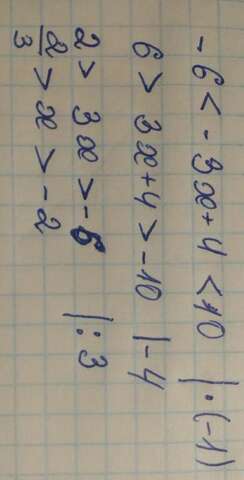 -6 < -3x+4 < 10 | · (-1)
6 > 3x+4 > -10 | -4
2 > 3x > -6 | : 3
2/3 > x > -2